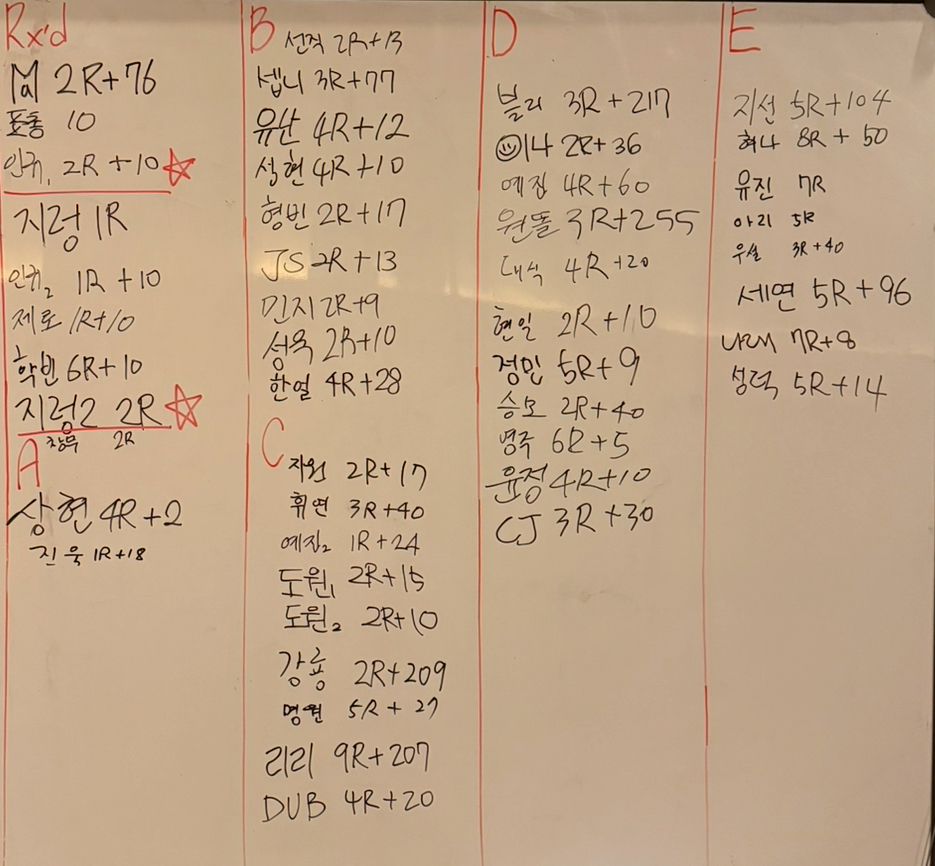 Rx'd
Mal 2R+76
표총 10
인귀1 2R+10
지렁 1R
인귀2 1R+10
제로 1R+10
학빈 6R+10
지렁2 2R
창무 2R
A
상현 4R+2
진욱 1R+18
B 선격 2R+13
셉니 3R+77
유산 4R+12
성현 4R+10
형빈 2R+17
JS 2R+13
민지 2R+9
성욱 2R+10
한얼 4R+28
C
자원 2R+17
휘연 3R+40
예진2 1R+24
도원1 2R+15
도원2 2R+10
강룡 2R+209
명현 5R+27
리리 9R+207
DUB 4R+20
D
블리 3R+217
이나 2R+36
예진 4R+60
원돌 3R+255
대식 4R+20
현일 2R+110
정민 5R+9
승모 2R+40
명주 6R+5
윤정 4R+10
CJ 3R+30
E
지선 5R+104
혀나 8R+50
유진 7R
아리 5R
우설 3R+40
세연 5R+96
나래 7R+8
성덕 5R+14